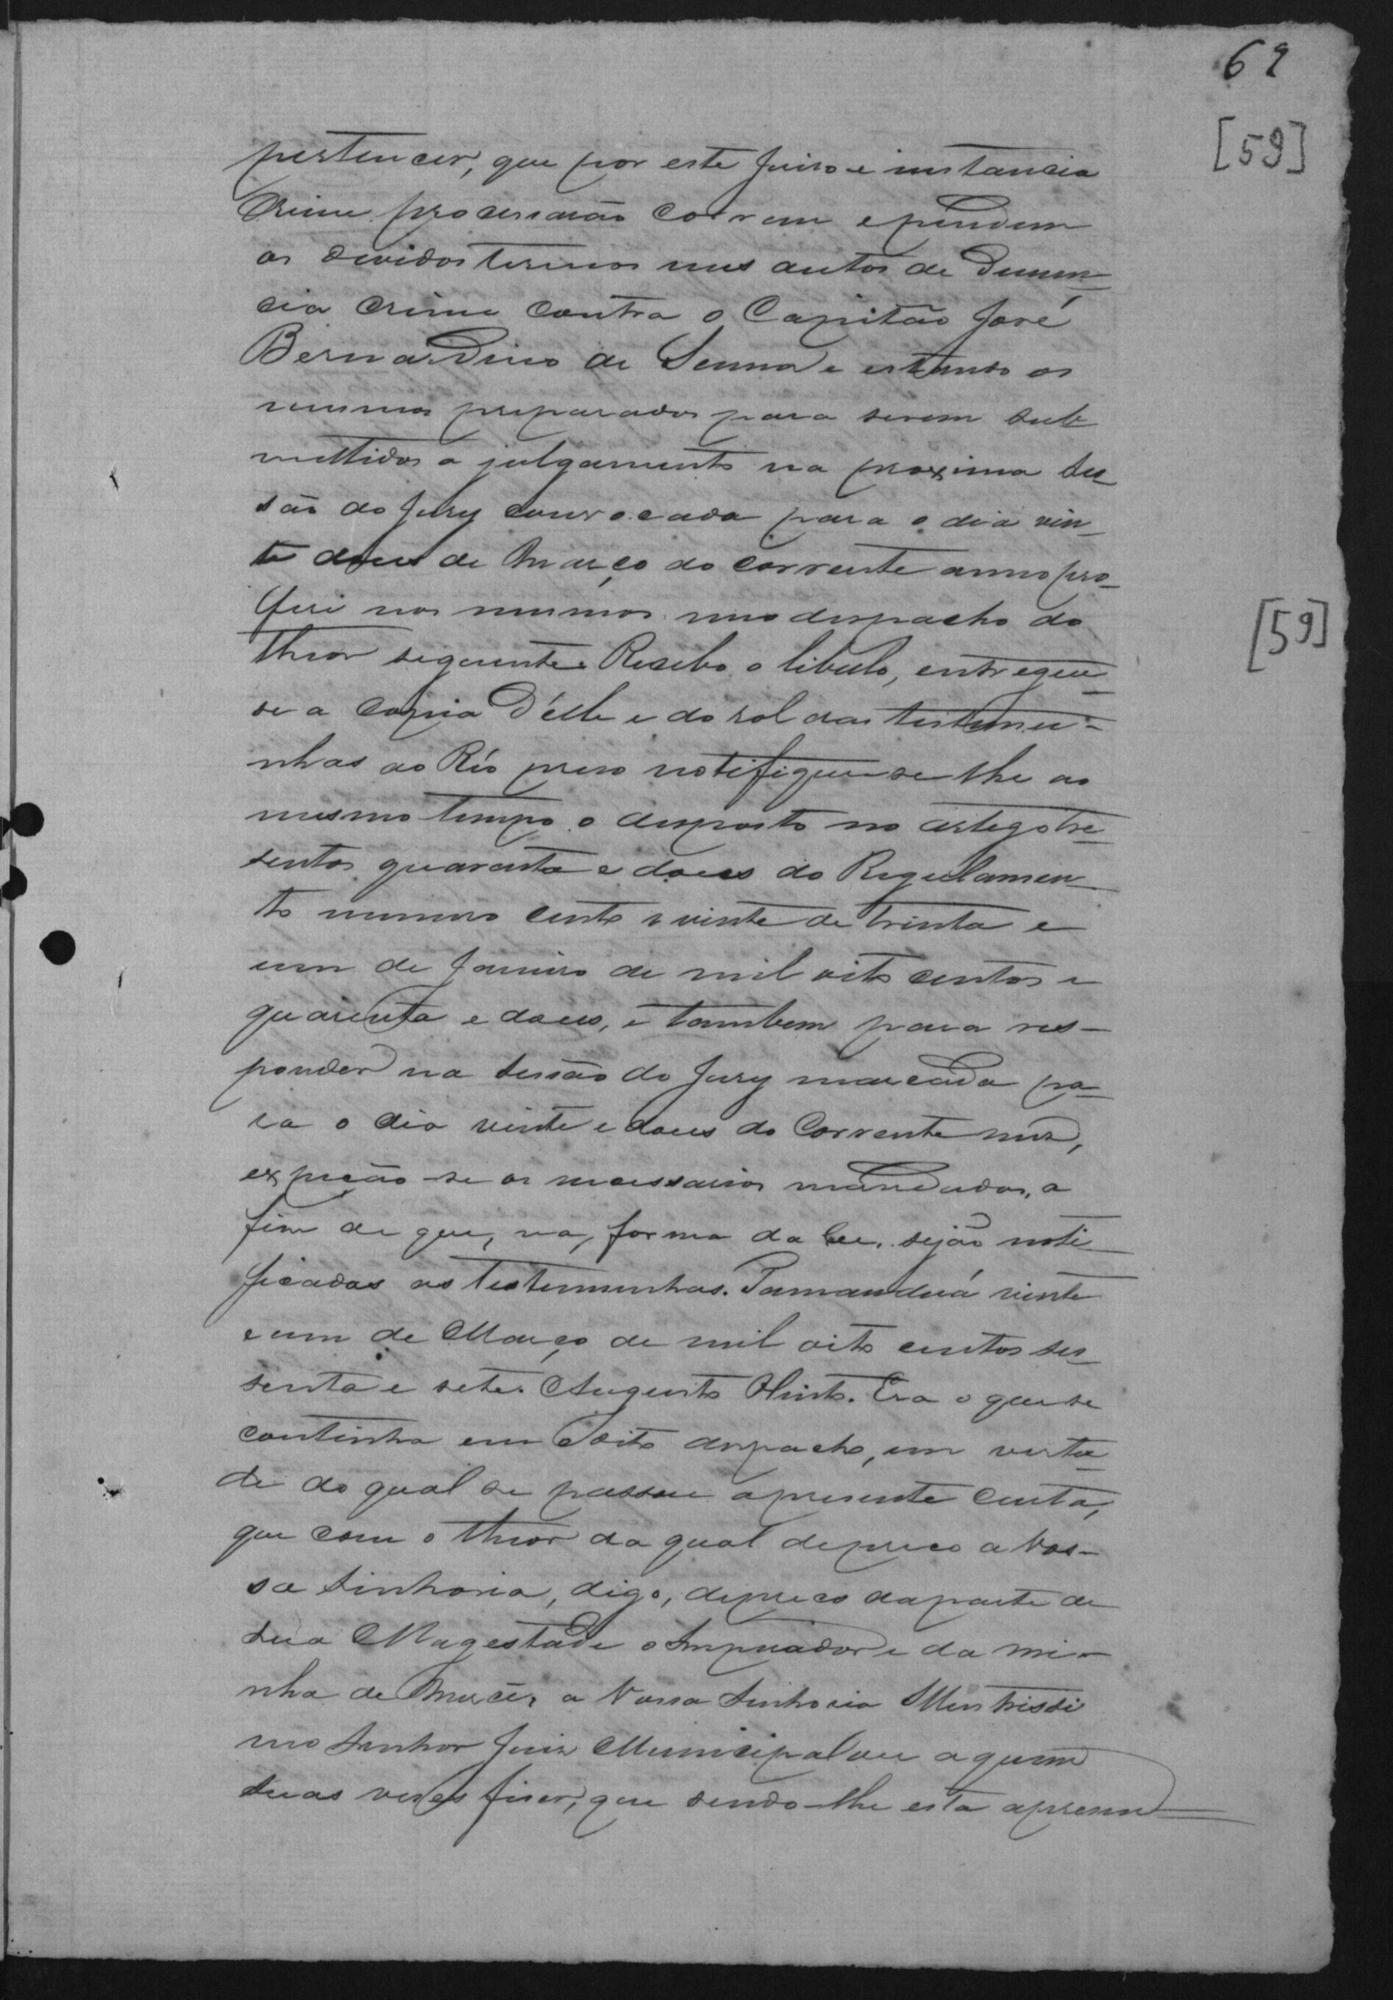 69
[59]
pertencer, que por este Juiso e instancia
Crime processarão correm e pendem
os devidos termos nus autos de Denun-
cia crime contra o Capitão José
Bernardino de Senna e estando os
mesmos preparados para serem sub
mettidos a julgamento na proxima Ses-
são do Jury convocada para o dia vin-
te dous de Março do corrente anno pro-
feri nos mesmos meo despacho do
theor seguinte. Recebo o libello, entregue-
se a copia d'elle e do rol das testemu-
nhas ao Réo preso notifique-se lhe ao
mesmo tempo o disposto no artego tre-
sentos quarenta e dous do Regulamen-
to numero cento e vinte de trinta e
um de Janeiro de mil oito centos e
quarenta e dous, e tambem para res-
ponder na sessão do Jury marcada pa-
ra o dia vinte e dous do Corrente mez,
expeção-se os necessarios mandados, a
fim de que, na forma da Lei, sejão noti-
ficadas as testemunhas. Tamanduá vinte
e um de Março de mil oito centos ses-
senta e sete. Augusto Olinto. Era o que se
continha em dito despacho, em vertu-
de do qual se passou a presente Carta,
que com o theor da qual depreco a Vos-
sa Sinhoria, digo, depreco da parte de
Sua Magestade o Imperador e da mi-
nha de Mercêz a Vossa Sinhoria Illustrissi
mo Senhor Juiz Municipal ou a quem
suas vezes fizer, que sendo-lhe esta apresen
[59]